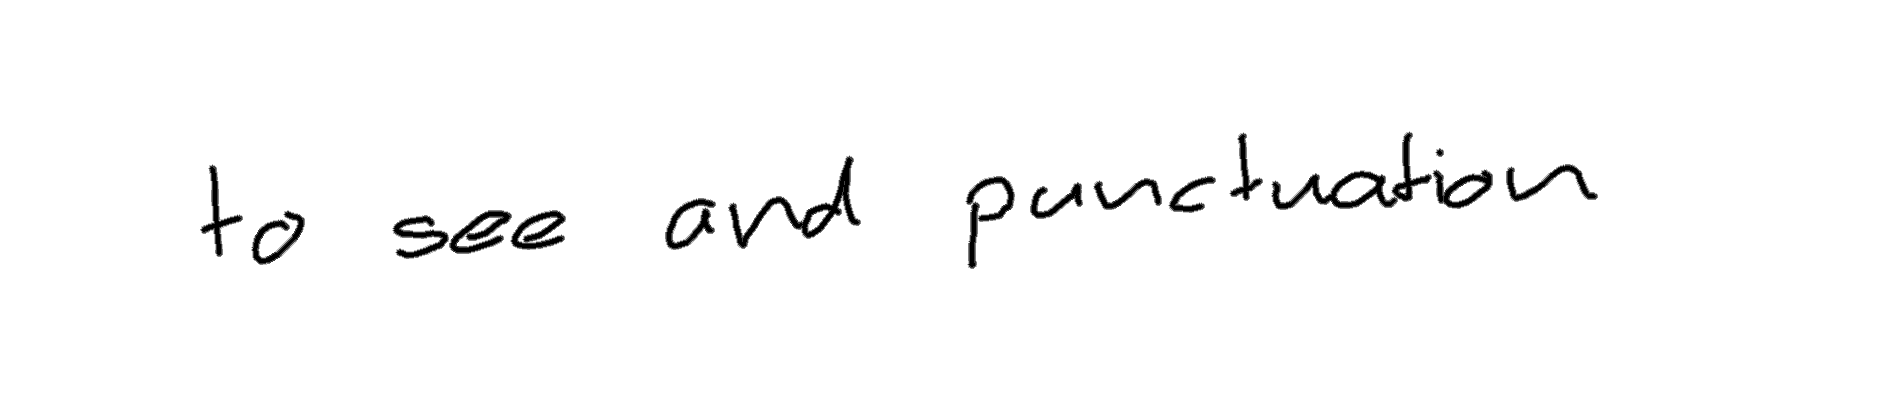 to see and punctuation